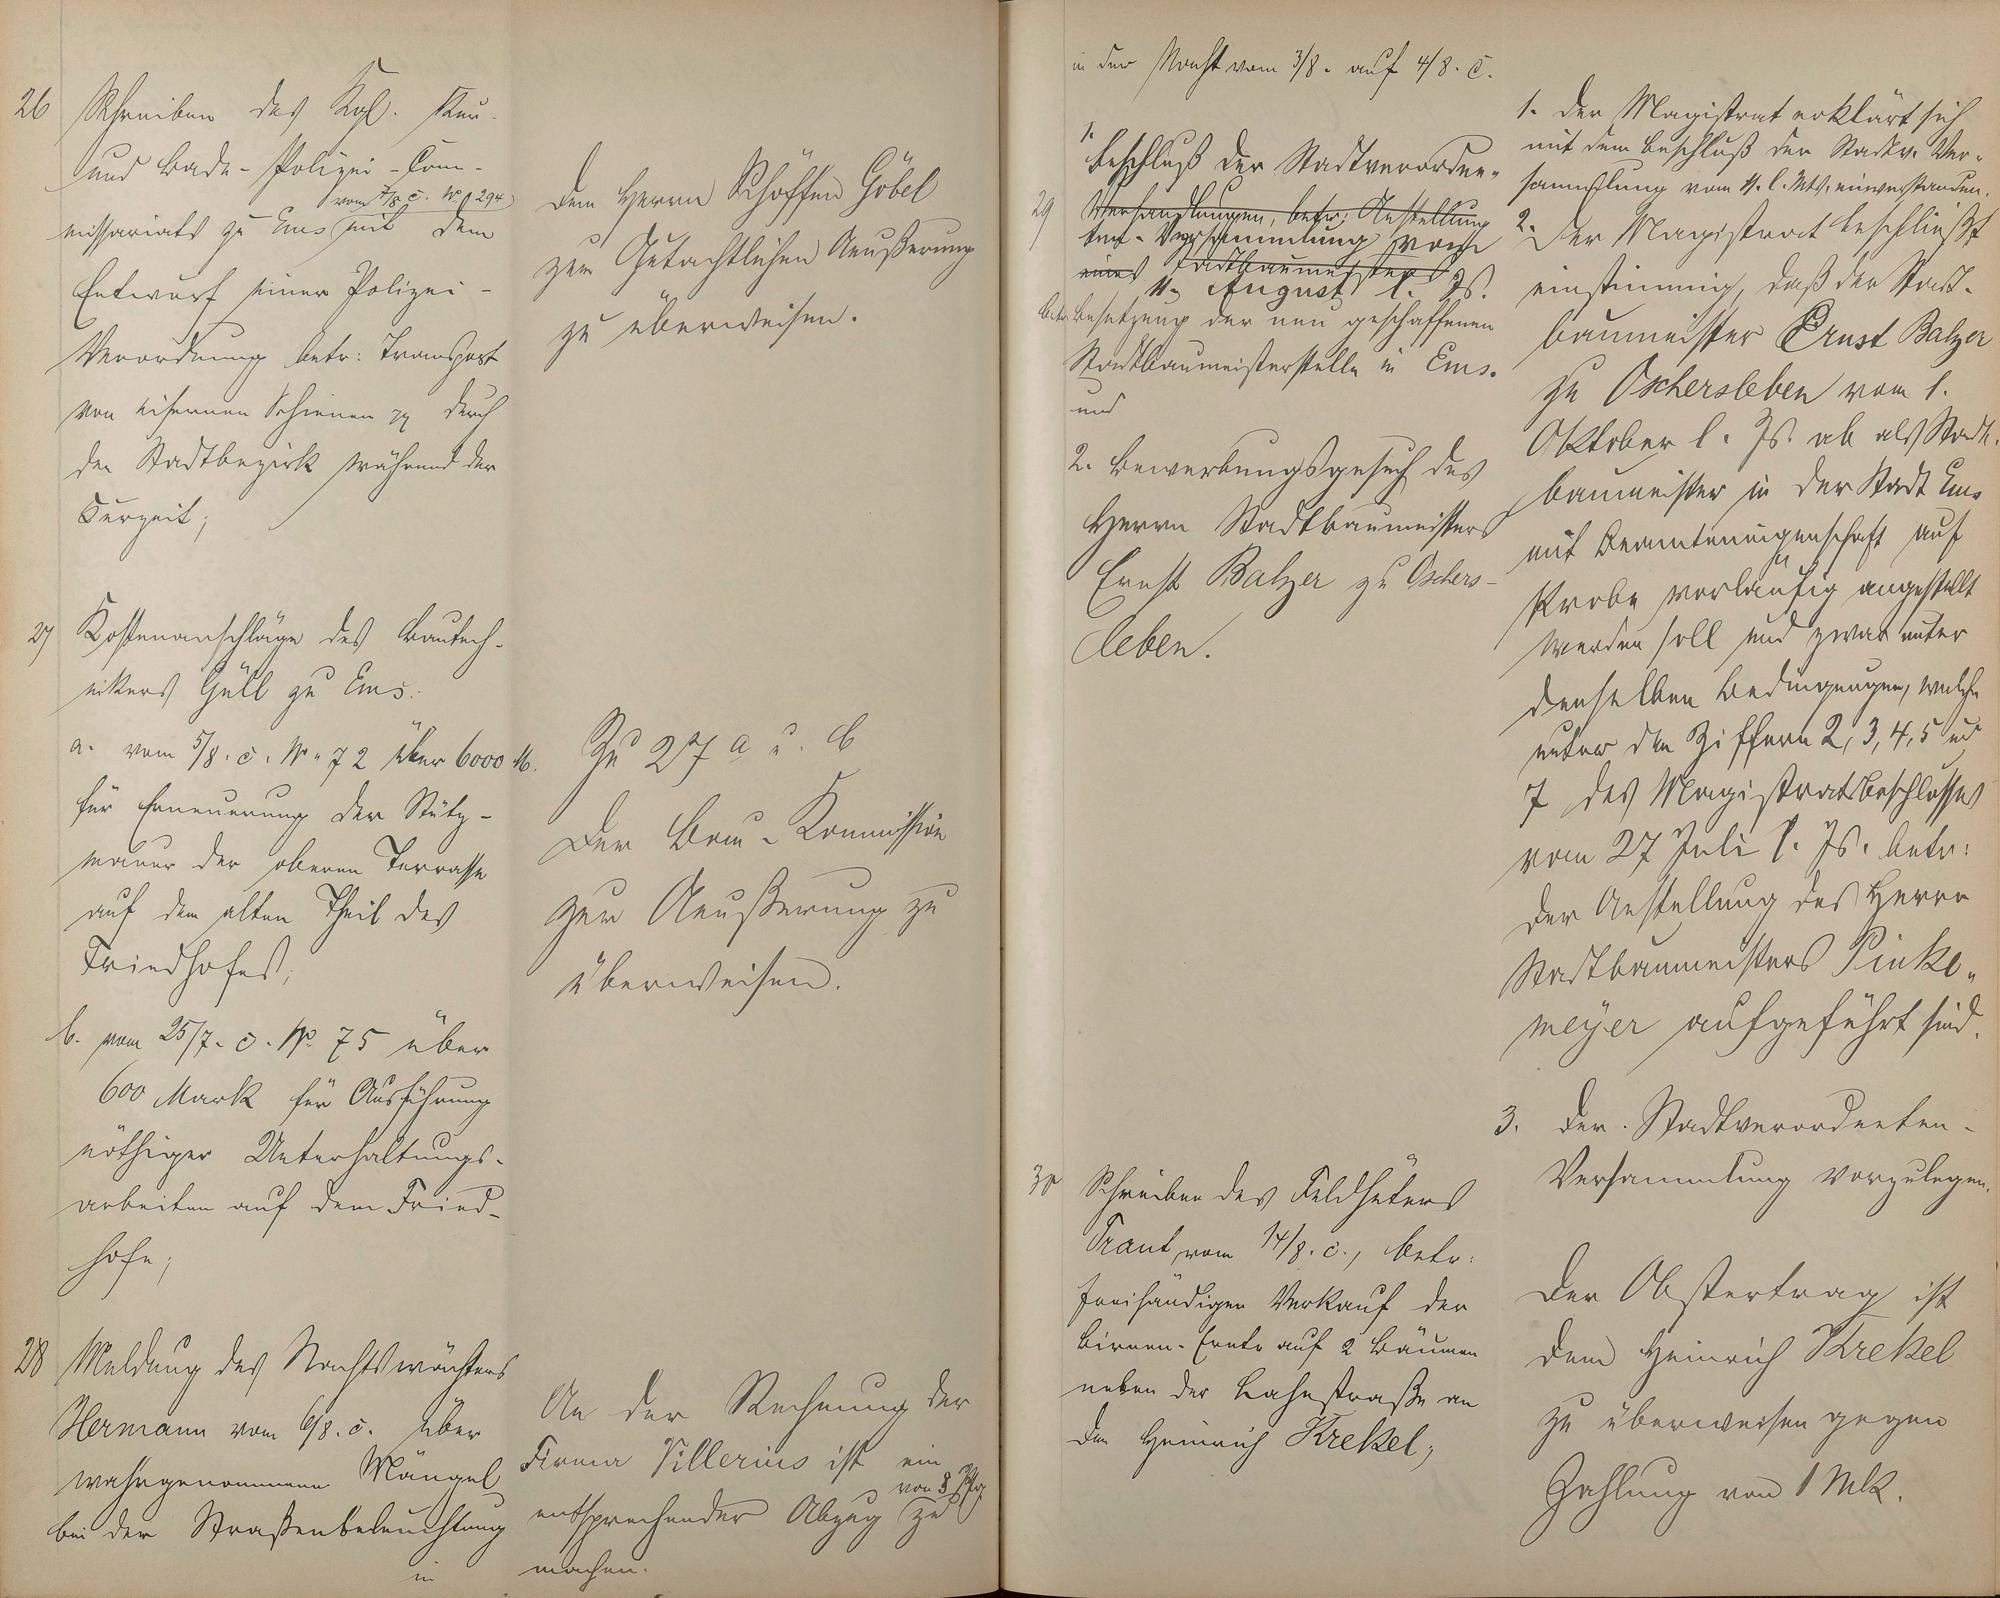 26 Schreiben des Kgl. Kur-
und Bade-Polizei-Com-
vom 7/8 c. No 1294
missariats zu Ems mit dem
Entwurf einer Polizei-
Verordnung betr: Transport
von eisernen Schienen pp durch
den Stadtbezirk während der
Curzeit;
Dem Herrn Schöffen Göbel
zur Gutachtlichen Aeußerung
zu überweisen.
27 Kostenanschläge des Bautech-
nikers Güll zu Ems.
a. vom 5/8. c. No. 72 über 6000 M.
für Erneuerung der Stütz-
mauer der oberen Terrasse
auf dem alten Theil des
Friedhofes;
b. vom 25/7. c. No. 75 über
600 Mark für Ausführung
nöthiger Unterhaltungs-
arbeiten auf dem Fried-
hofe;
Zu 27 a u. b
Der Bau-Kommission
zur Aeußerung zu
überweisen.
28 Meldung des Nachtswächters
Hermann vom 6/8. c. über
wahrgenommene Mängel
bei der Straßenbeleuchtung
in
An der Rechnung der
Firma Villerius ist ein
von 8 Pfg
entsprechender Abzug zu
machen.
in der Nacht vom 3/8. auf 4/8. c.
1.
Beschluß der Stadtverordne-
29 Verhandlungen, betr: Anstellung
ten-Versammlung vom
eines Stadtbaumeisters
11. August l. Js.
betr. Besetzung der neu geschaffenen
Stadtbaumeisterstelle in Ems.
und
2. Bewerbungsgesuch des
Herrn Stadtbaumeisters
Ernst Balzer zu Oschers-
leben.
1. Der Magistrat erklärt sich
mit dem Beschluß der Stadtv. Ver-
sammlung vom 11. l. Mts. einverstanden.
2. Der Magistrat beschließt
einstimmig, daß der Stadt-
baumeister Ernst Balzer
zu Oschersleben vom 1.
Oktober l. Js. ab als Stadt-
baumeister in der Stadt Ems
mit Beamteneigenschaft auf
Probe vorläufig angestellt
werden soll und zwar unter
denselben Bedingungen, welche
unter den Ziffern 2, 3, 4, 5 und
7 des Magistratsbeschlusses
vom 27 Juli l. Js. betr:
der Anstellung des Herrn
Stadtbaumeisters Pinke-
meyer aufgeführt sind.
3. Der Stadtverordneten-
Versammlung vorzulegen.
30 Schreiben des Feldhüters
Traut vom 14/8. c., betr:
freihändigen Verkauf der
Birnen-Ernte auf 2 Bäumen
neben der Lahnstraße an
den Heinrich Krekel;
Der Obstertrag ist
dem Heinrich Krekel
zu überweisen gegen
Zahlung von 1 Mk.